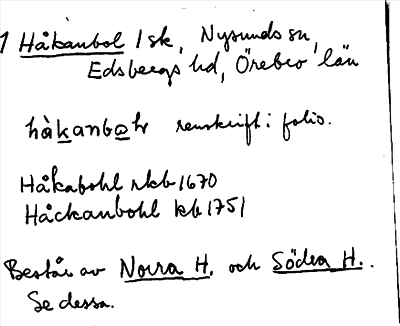 1 Håkanbol 1 sk, Nysunds sn,
Edsbergs hd, Örebro län
håkanbo̲lr renskrift i folio.
Håkabohl rkb 1670
Håckanbohl kb 1751
Består av Norra H. och Södra H..
Se dessa.